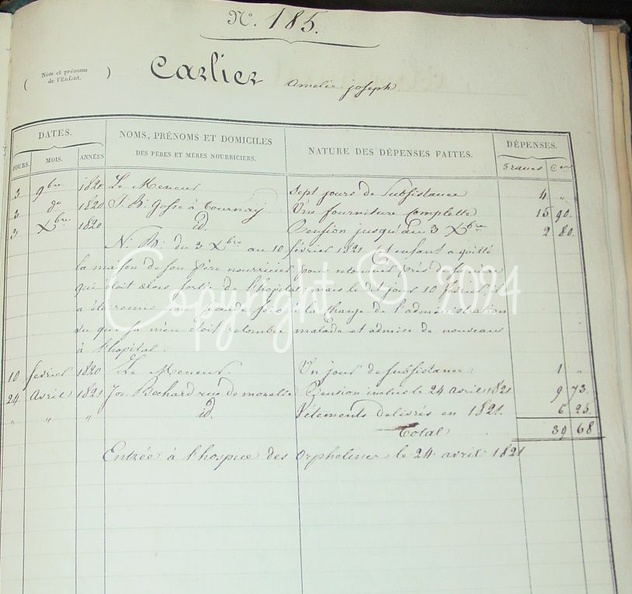 N.° 185.
( Nom et prénoms de l'Enfant. ) Carlier Amelie joseph
DATES. NOMS, PRÉNOMS ET DOMICILES DES PÈRES ET MÈRES NOURRICIERS. NATURE DES DÉPENSES FAITES. DÉPENSES.
JOURS. MOIS. ANNÉES Francs Cen
3 9bre 1820 Le Meneur Sept jours de Subsistance 4 "
3 do 1820 J. B. Gosse à Tournay Une fourniture complette 15 90
3 Xbre 1820 id. Pension jusqu'au 3 Xbre 2 80
N. B. du 3 Xbre au 10 février 1821 enfant a quitté
la maison de son père nourricier pour
qui étoit alors sortie de l'hopital mais le dit jour 10 février
a été remis à la charge de l'administration
vu que sa mère étoit retombée malade et admise de nouveau
à l'hopital.
10 février 1820 Le Meneur Un jour de subsistance 1 "
24 Avril 1821 Jos. Bechard rue de Pension inclus le 24 avril 1821 9 73
" " " id. Vêtements délivrés en 1821. 6 25
Total 39 68
Entrée à l'hospice des Orphelines le 24 avril 1821
Copyright © 2024